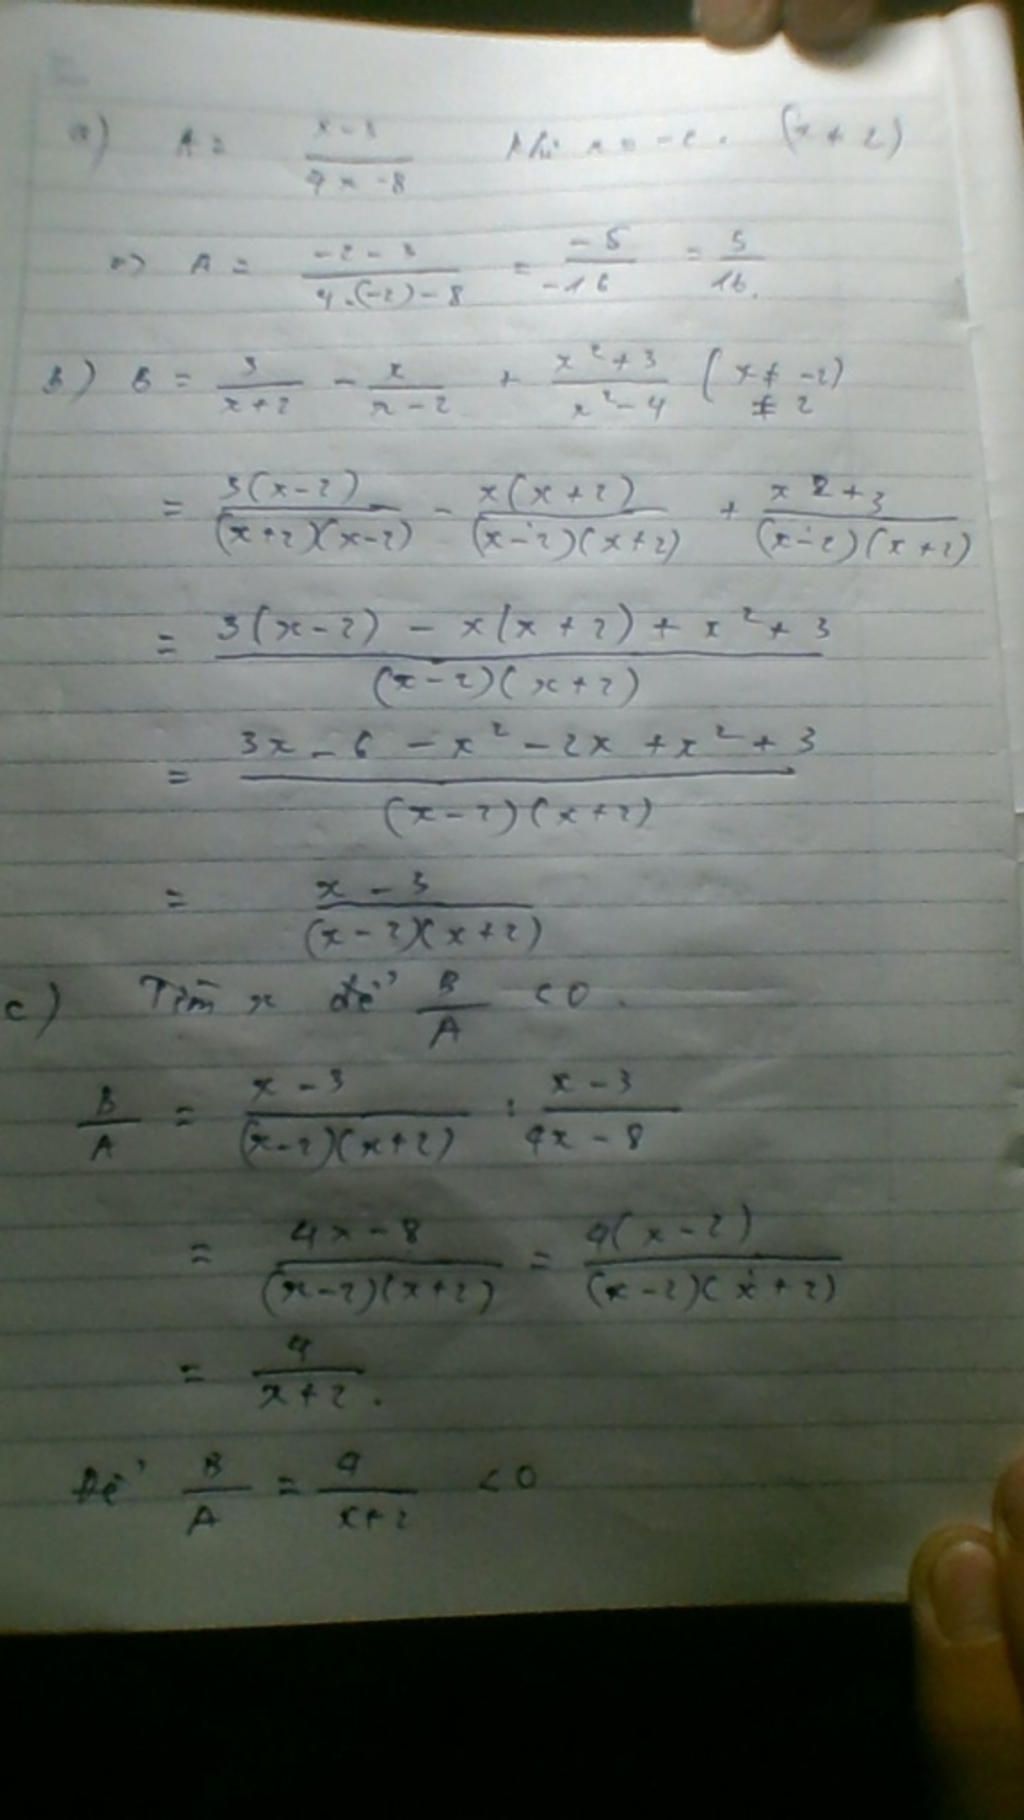 a) A = \frac{x-3}{4x-8} khi x = -2. (x ≠ 2)
=> A = \frac{-2-3}{4.(-2)-8} = \frac{-5}{-16} = \frac{5}{16}.
b) B = \frac{3}{x+2} - \frac{x}{x-2} + \frac{x^2+3}{x^2-4} (x ≠ -2) ≠ 2
= \frac{3(x-2)}{(x+2)(x-2)} - \frac{x(x+2)}{(x-2)(x+2)} + \frac{x^2+3}{(x-2)(x+2)}
= \frac{3(x-2) - x(x+2) + x^2+3}{(x-2)(x+2)}
= \frac{3x-6-x^2-2x+x^2+3}{(x-2)(x+2)}
= \frac{x-3}{(x-2)(x+2)}
c) Tìm x để \frac{B}{A} < 0.
\frac{B}{A} = \frac{x-3}{(x-2)(x+2)} : \frac{x-3}{4x-8}
= \frac{4x-8}{(x-2)(x+2)} = \frac{4(x-2)}{(x-2)(x+2)}
= \frac{4}{x+2}.
Để \frac{B}{A} = \frac{4}{x+2} < 0